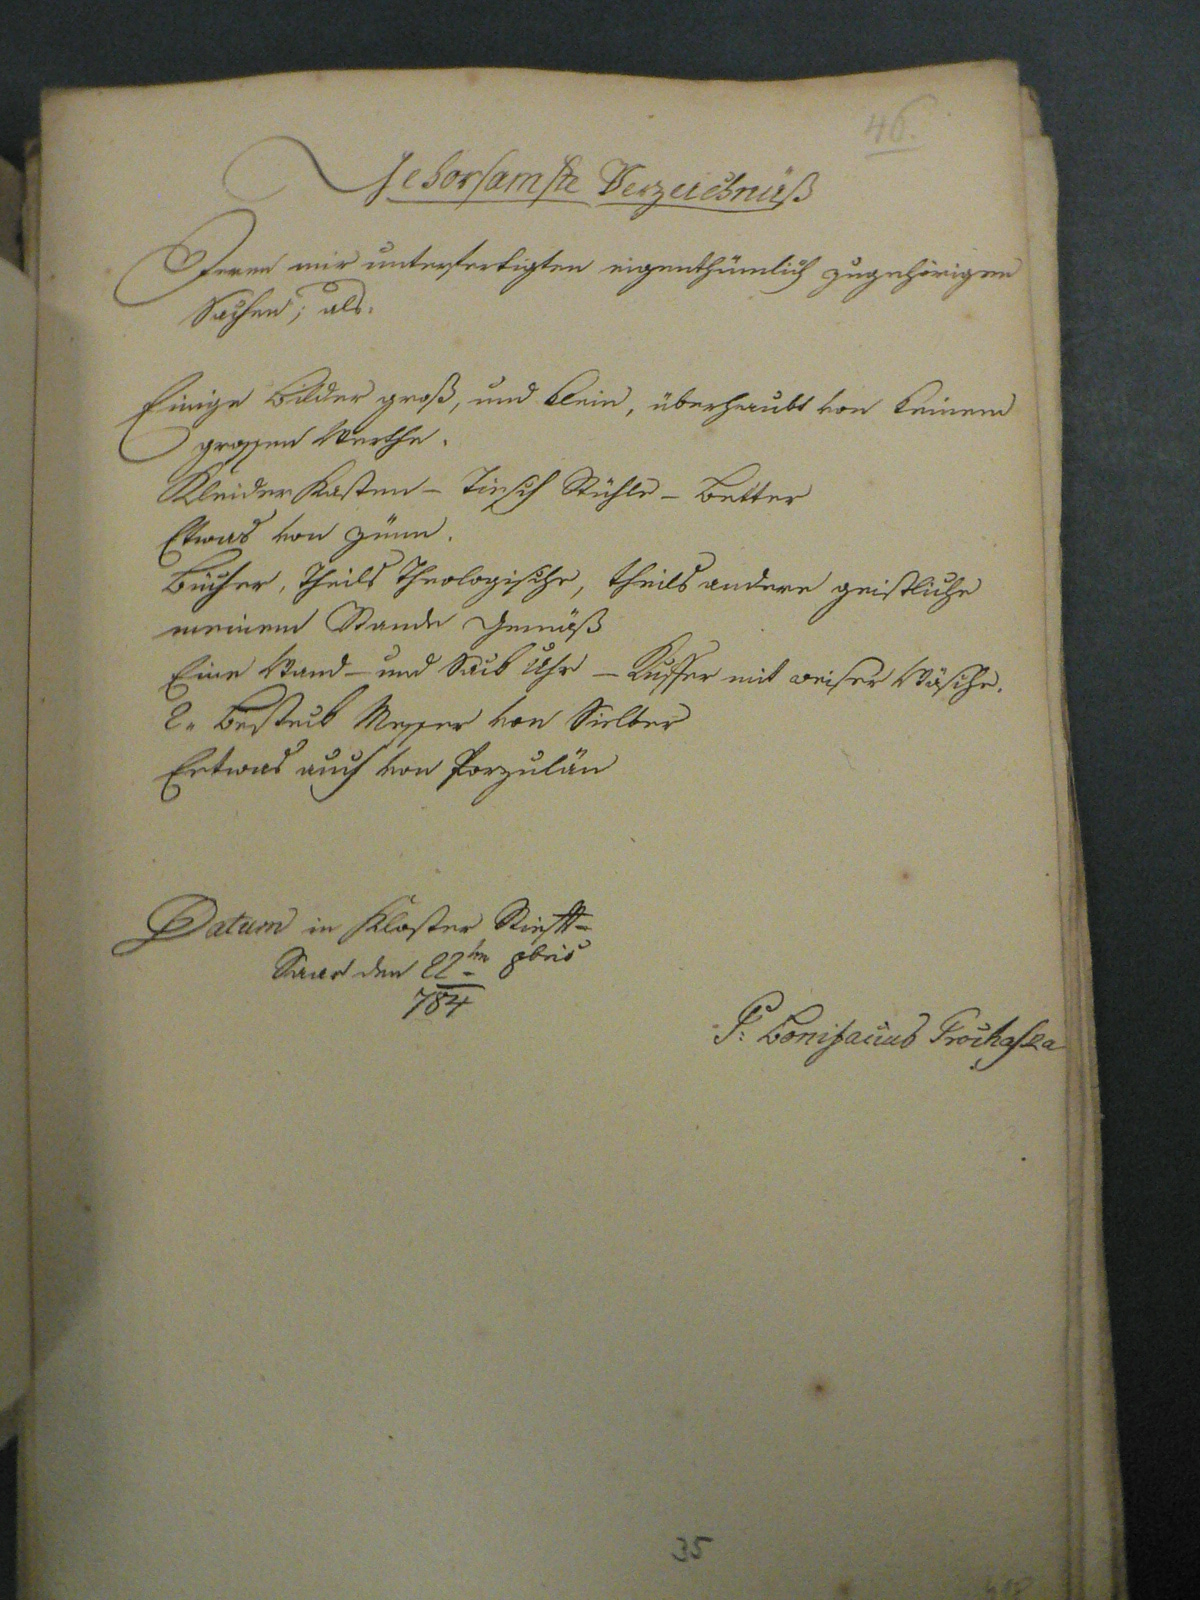 46.
Gehorsamste Verzeichnüß
Deren mir unterfertigten eigenthümlich zugehörigen
Sachen; als.
Einige Bilder groß, und klein, überhaubt von keinem
grossen Werthe.
Kleider Kasten – Tiesch Stühle – Better
Etwas von Zünn.
Bücher, Theils Theologische, theils andere geistliche
meinem Stande Gemäß
Eine Wand – und Sack Uhr – Kuffer mit weiser Wäsche.
2. Besteck Messer von Sielber
Entwas auch von Porzulän
Datum in Kloster Stiefft
Saar den 22ten 9bris
784
P: Bonifacius Prochaska
35